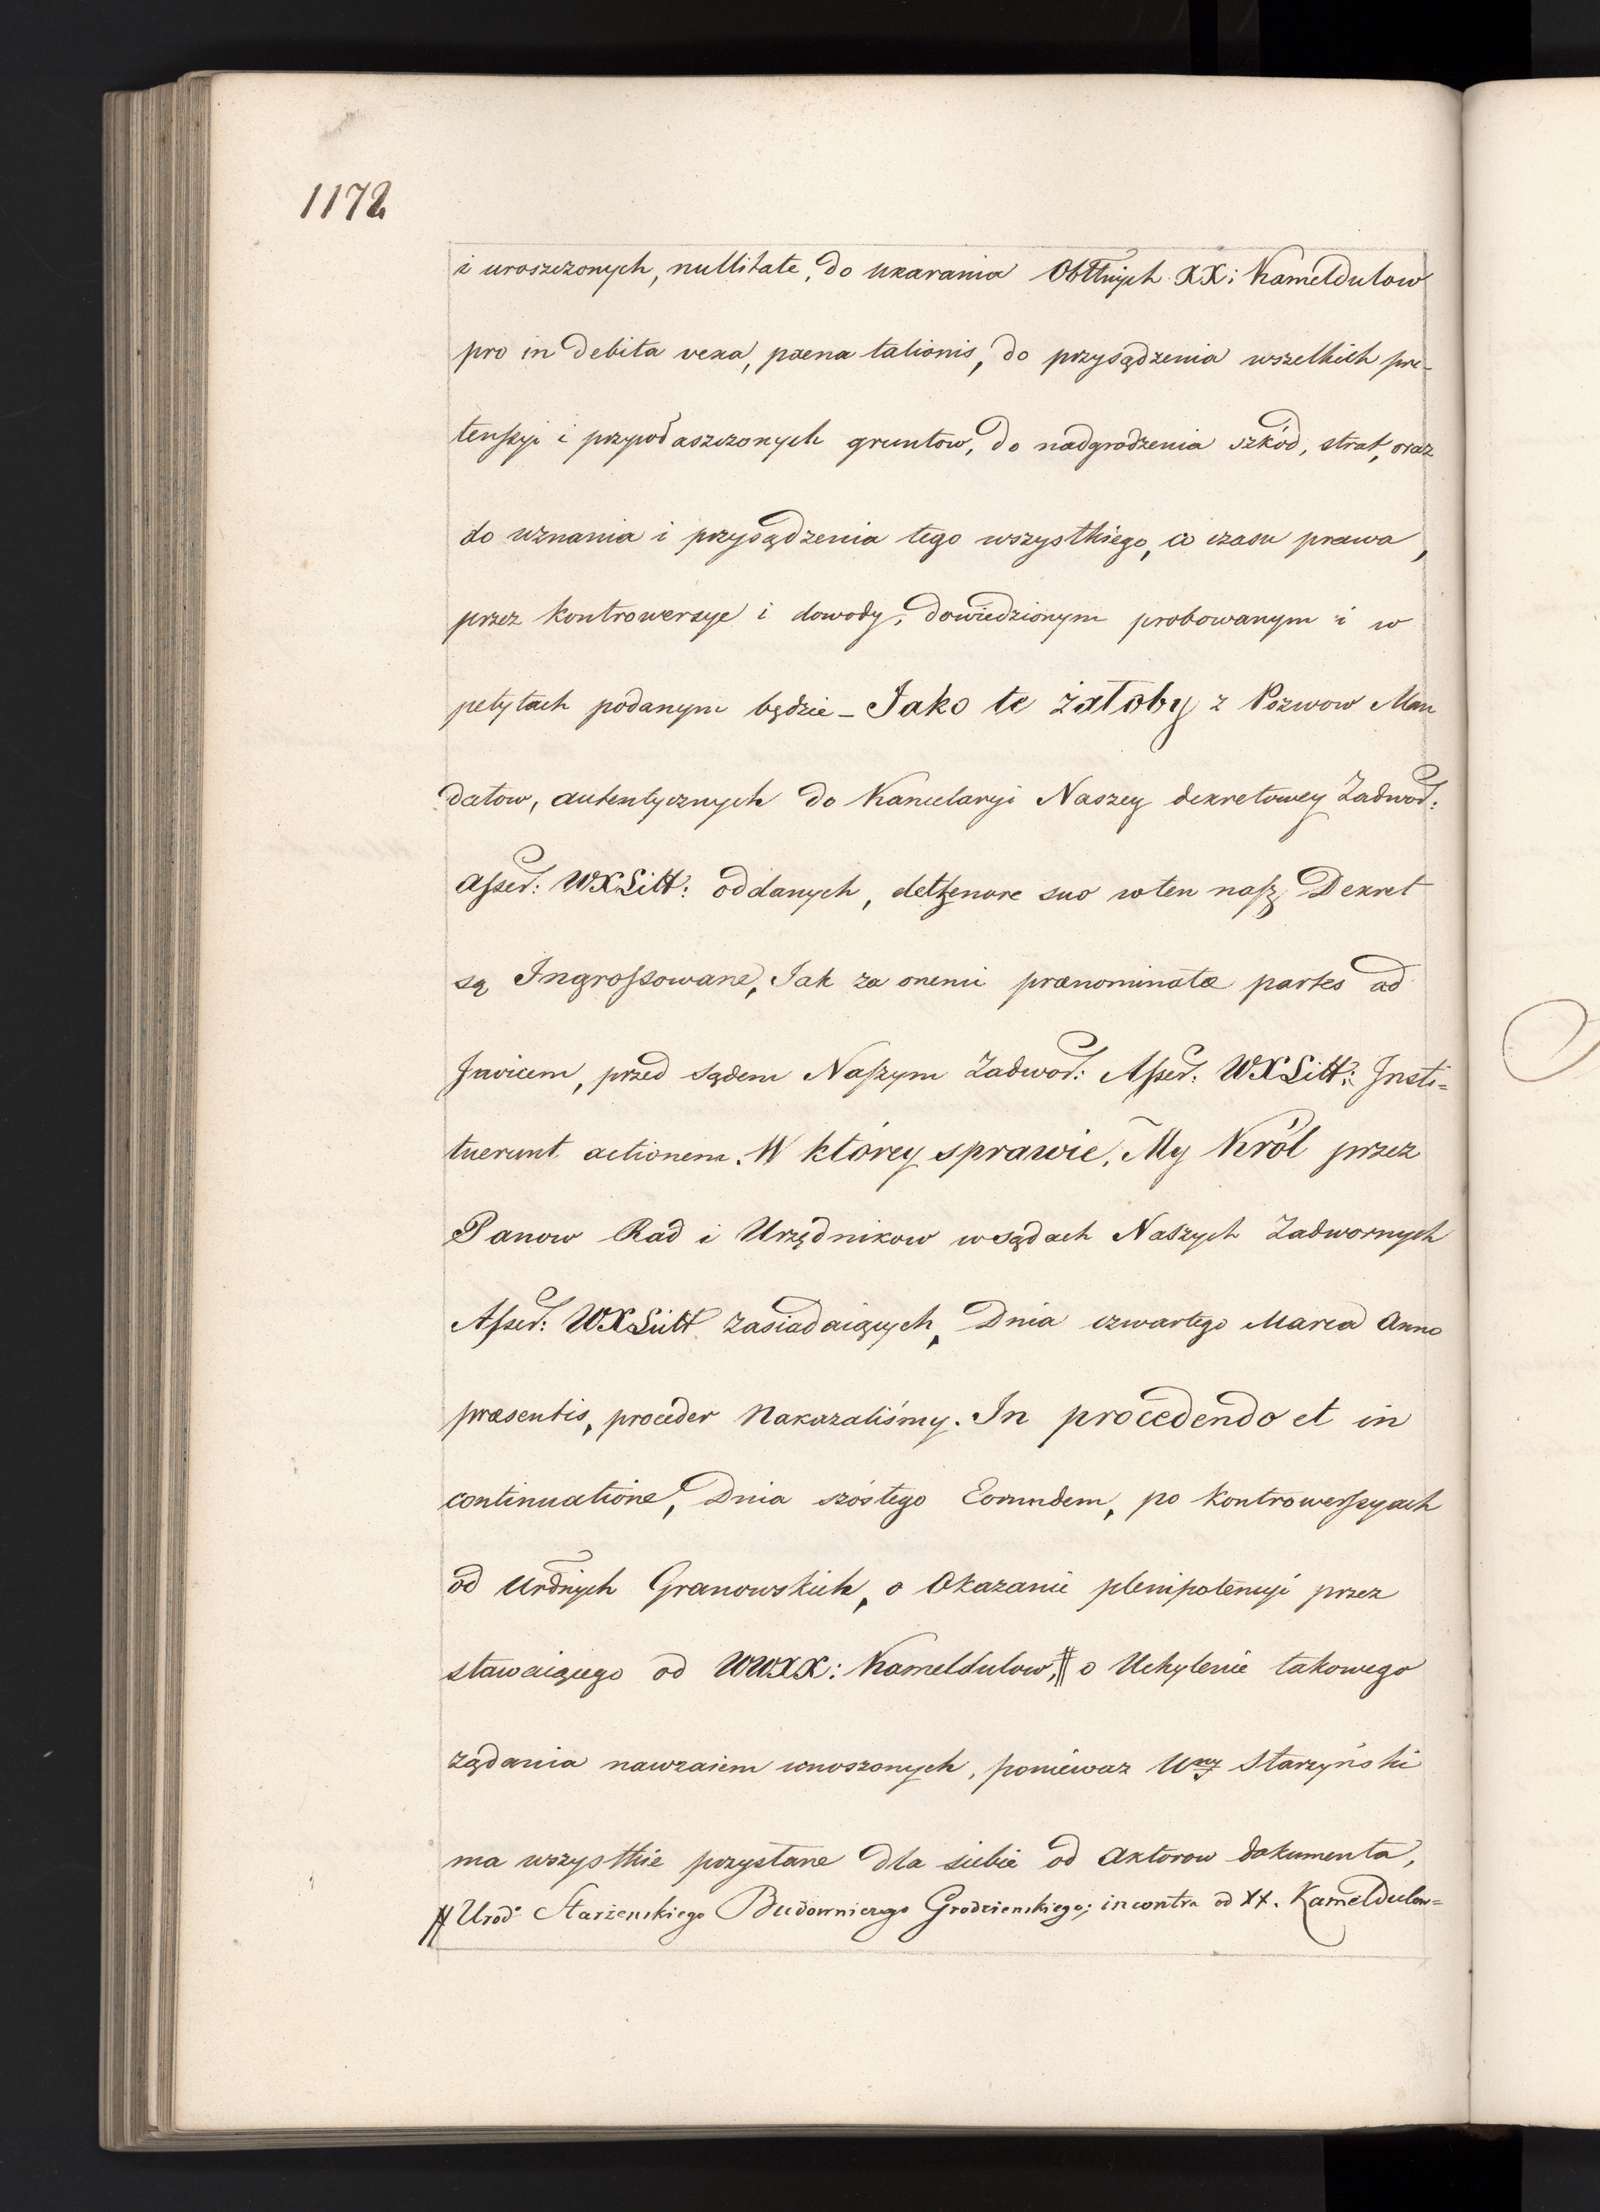 1172
i uroszczonych, nullitate, do ukarania Obłnych XX: Kameldulow
pro in debita vexa, pæna talionis, do przysądzenia wszelkich pre-
tensyi i przywłaszczonych gruntow, do nadgrodzenia szkód, strat, oraz
do uznania i przysądzenia tego wszystkiego, co czasu prawa,
przez kontrowersye i dowody, dowiedzionym probowanym i w
petytach podanym będzie _ Jako te żałoby z Pozwow Man
datow, autentycznych do Kancelaryi Naszey dekretowey Zadwor:
Asser: WXLitt: oddanych, de tenore suo w ten nasz Dekret
są Ingrossowane, Jak za onemi prænominatæ partes ad
Invicem, przed sądem Naszym Zadwor: Asser: WXLitt: Insti=
tuerunt actionem. W którey sprawie, My Król przez
Panow Rad i Urzędnikow w sądach Naszych Zadwornych
Asser: WXLitt zasiadaiących, Dnia czwartego Marca Anno
præsentis, proceder Nakazaliśmy. In procedendo et in
continuatione, Dnia szóstego Eorundem, po kontrowersyach
od Urdnych Granowskich, o Okazanie plenipotencyi przez
stawaiącego od WWXX: Kameldulow, # o Uchylenie takowego
żądania nawzaiem wnoszonych, ponieważ Wny Starzyński
ma wszystkie przysłane dla siebie od Aktorow dokumenta,
# Urod: Starzenskiego Budowniczego Grodzienskiego; incontra od XX. Kameldulow=